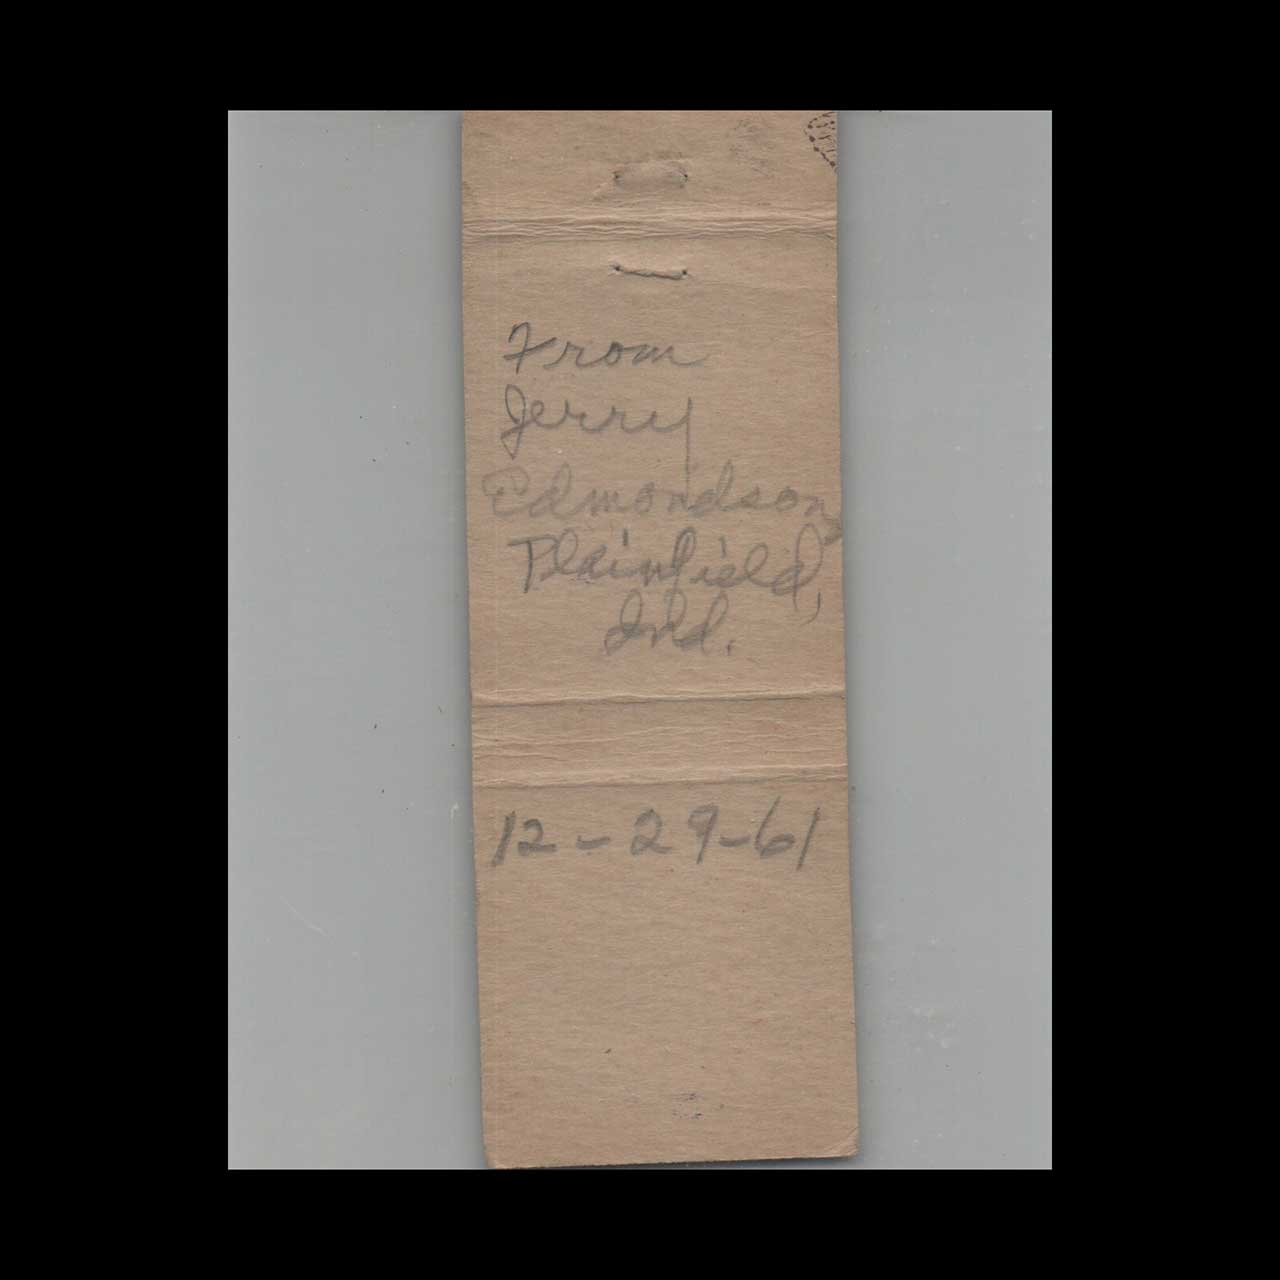 From
Jerry
Edmondson
Plainfield,
Ind.
12-29-61